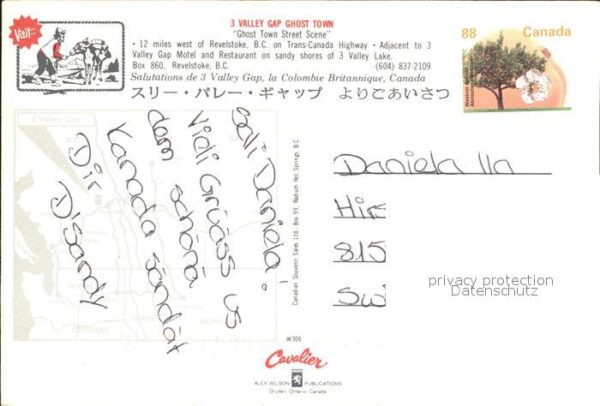 Visit
3 VALLEY GAP GHOST TOWN
"Ghost Town Street Scene"
• 12 miles west of Revelstoke, B.C. on Trans-Canada Highway • Adjacent to 3
Valley Gap Motel and Restaurant on sandy shores of 3 Valley Lake.
Box 860, Revelstoke, B.C. (604) 837-2109
Salutations de 3 Valley Gap, la Colombie Britannique, Canada
スリー・バレー・ギャップ よりごあいさつ
88 Canada
3 Valley Gap
Sali Daniela!
Vidi Grüäss us
dem schönä
Kanada sändät
Dir
D'Sandy
Canadian Souvenir Sales Ltd., Box 99, Radium Hot Springs, B.C.
Daniela
Hir
815
Swi
privacy protection
Datenschutz
#306
Cavalier
ALEX WILSON PUBLICATIONS
Dryden, Ontario, Canada